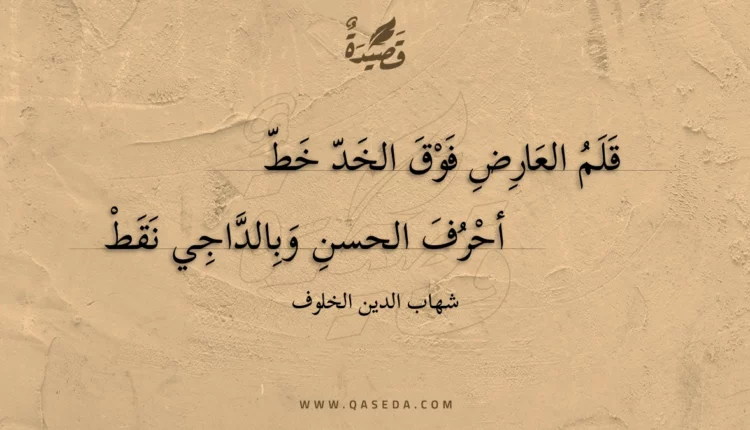 قَصِيْدَةٌ
قَلَمُ العَارِضِ فَوْقَ الخَدّ خَطّ
أحْرُفَ الحسنِ وَبِالدَّاجِي نَقَطْ
شهاب الدين الخلوف
WWW.QASEDA.COM